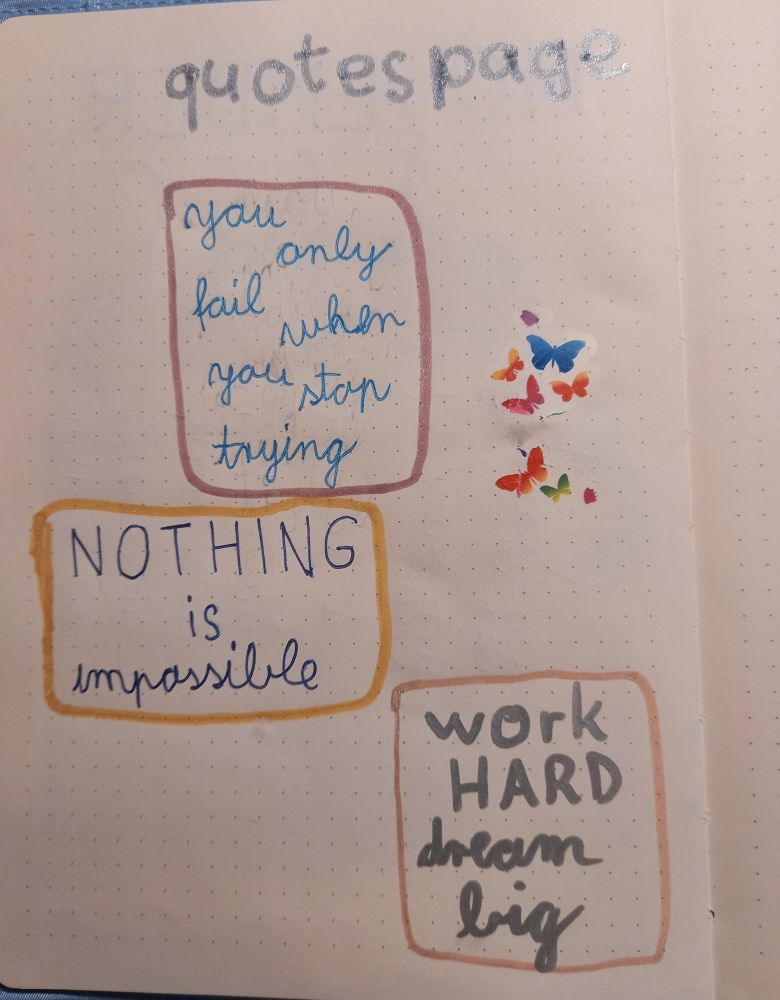 quotes page
you
only
fail
when
you stop
trying
NOTHING
is
impossible
work
HARD
dream
big